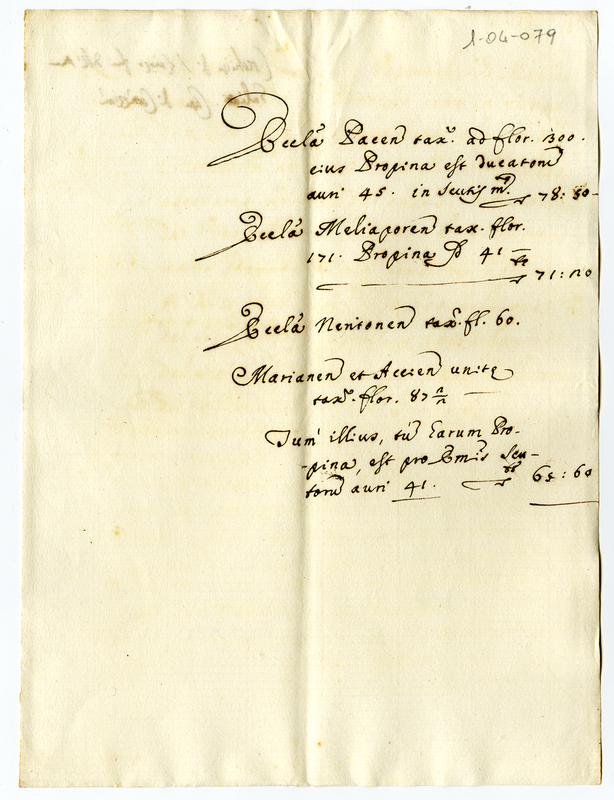 1-04-079
Eccla Pacen tax. ad flor. 300.
eius Propina est ducatorū
auri 45. in scutis m.ta 78: 80
Eccla Meliaporen tax. flor.
171. Propina 41
71: 20
Eccla Neritonen tax. fl. 60.
Marianen et Accien unitę
tax. flor. 87 ½
Tum illius, tū Earum Pro-
-pina, est pro Emis scu-
torū auri 41. 65: 60